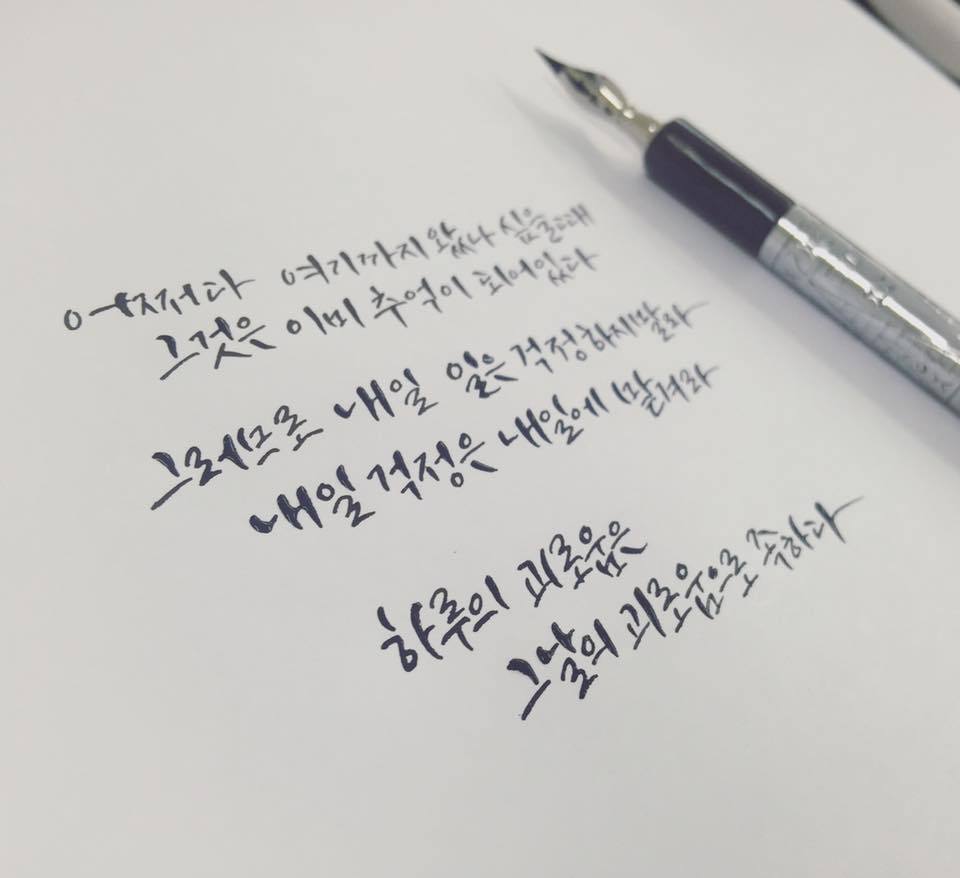 어쩌다 여기까지 왔나 싶을때
그것은 이미 추억이 되어있다
그러므로 내일 일은 걱정하지말라
내일 걱정은 내일에 맡겨라
하루의 괴로움은
그날의 괴로움으로 족하다